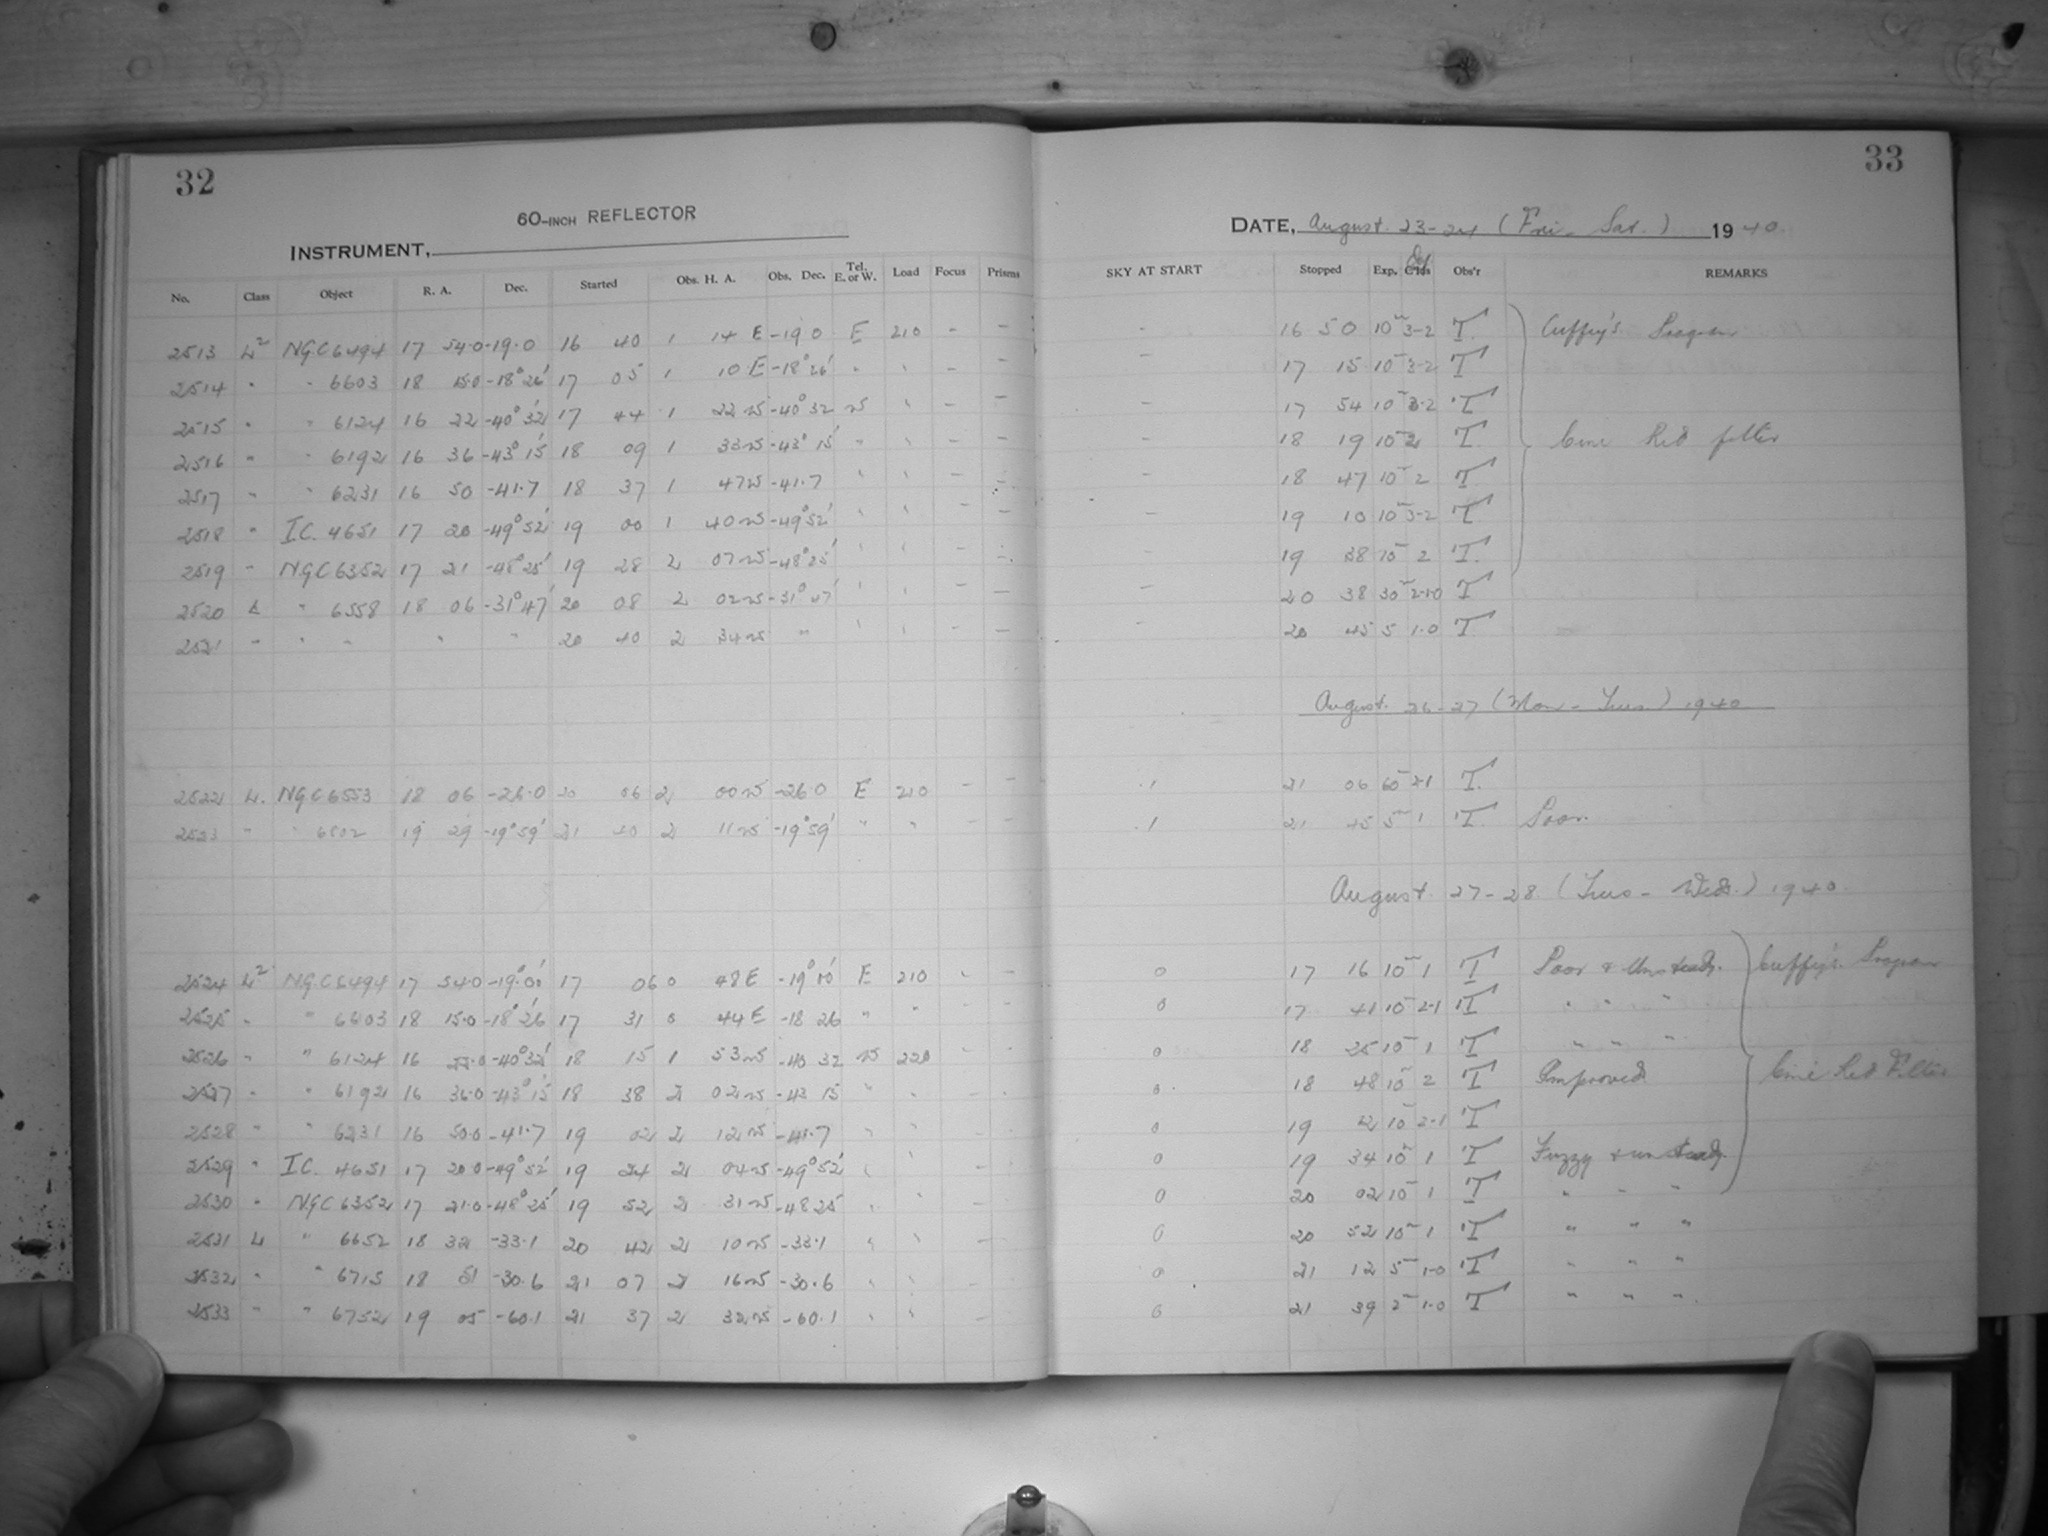 32
60-INCH REFLECTOR
INSTRUMENT,
No. Class Object R. A. Dec. Started Obs. H. A. Obs. Dec. Tel. E. or W. Load Focus Prisms
2513 L² NGC 6494 17 54.0 -19.0 16 40 1 14 E -19.0 E 210 - -
2514 " " 6603 18 15.0 -18°26' 17 05 1 10 E -18°26' " " - -
2515 " " 6124 16 22 -40°32' 17 44 1 22 W -40°32 W " - -
2516 " " 6192 16 36 -43°15' 18 09 1 33 W -43°15' " " - -
2517 " " 6231 16 50 -41.7 18 37 1 47 W -41.7 " " - -
2518 " I.C. 4651 17 20 -49°52' 19 00 1 40 W -49°52' " " - -
2519 " NGC 6352 17 21 -48°25' 19 28 2 07 W -48°25' " " - -
2520 L " 6558 18 06 -31°47' 20 08 2 02 W -31°47' " " - -
2521 " " " " " 20 40 2 34 W " " " - -
2522 L. NGC 6553 18 06 -26.0 20 06 2 00 W -26.0 E 210 - -
2523 " " 19 29 -19°59' 21 40 2 11 W -19°59' " " - -
2524 L² NGC 6494 17 54.0 -19°00' 17 06 0 48 E -19°00' E 210 - -
2525 " " 6603 18 15.0 -18°26' 17 31 0 44 E -18 26 " " - -
2526 " " 6124 16 22.0 -40°32' 18 15 1 53 W -40 32 W 220 - -
2527 " " 6192 16 36.0 -43°15' 18 38 2 02 W -43 15 " " - -
2528 " " 6231 16 50.0 -41.7 19 02 2 12 W -41.7 " " - -
2529 " I.C. 4651 17 20.0 -49°52' 19 24 2 04 W -49°52' " " -
2530 " NGC 6352 17 21.0 -48°25' 19 52 2 31 W -48 25 " " -
2531 L " 6652 18 32 -33.1 20 42 2 10 W -33.1 " " -
2532 " " 6715 18 51 -30.6 21 07 2 16 W -30.6 " " -
2533 " " 6752 19 05 -60.1 21 37 2 32 W -60.1 " " -
33
DATE, August 23-24 (Fri - Sat.) 1940
SKY AT START Stopped Exp. Obs'r REMARKS
- 16 50 10ᵐ 3-2 T. Cuffey's Program
- 17 15 10ᵐ 3-2 T
- 17 54 10ᵐ 3-2 T
- 18 19 10ᵐ 2 T. Cine Red filter
- 18 47 10ᵐ 2 T
- 19 10 10ᵐ 3-2 T
- 19 38 10ᵐ 2 T.
- 20 38 30ᵐ T
- 20 45 5 1-0 T
August 26-27 (Mon - Tues) 1940
.1 21 06 60ᵐ 2-1 T.
.1 21 45 5ᵐ 1 T. Poor.
August 27-28 (Tues - Wed.) 1940
0 17 16 10ᵐ 1 T Poor & Unsteady. Cuffey's Program
0 17 41 10ᵐ 2-1 T " " "
0 18 25 10ᵐ 1 T " " "
0 18 48 10ᵐ 2 T Improved Cine Red Filter
0 19 12 10ᵐ 2-1 T
0 19 34 10ᵐ 1 T Fuzzy & unsteady.
0 20 02 10ᵐ 1 T " " "
0 20 52 10ᵐ 1 T " " "
0 21 12 5ᵐ 1-0 T " " "
0 21 39 2ᵐ 1-0 T " " "